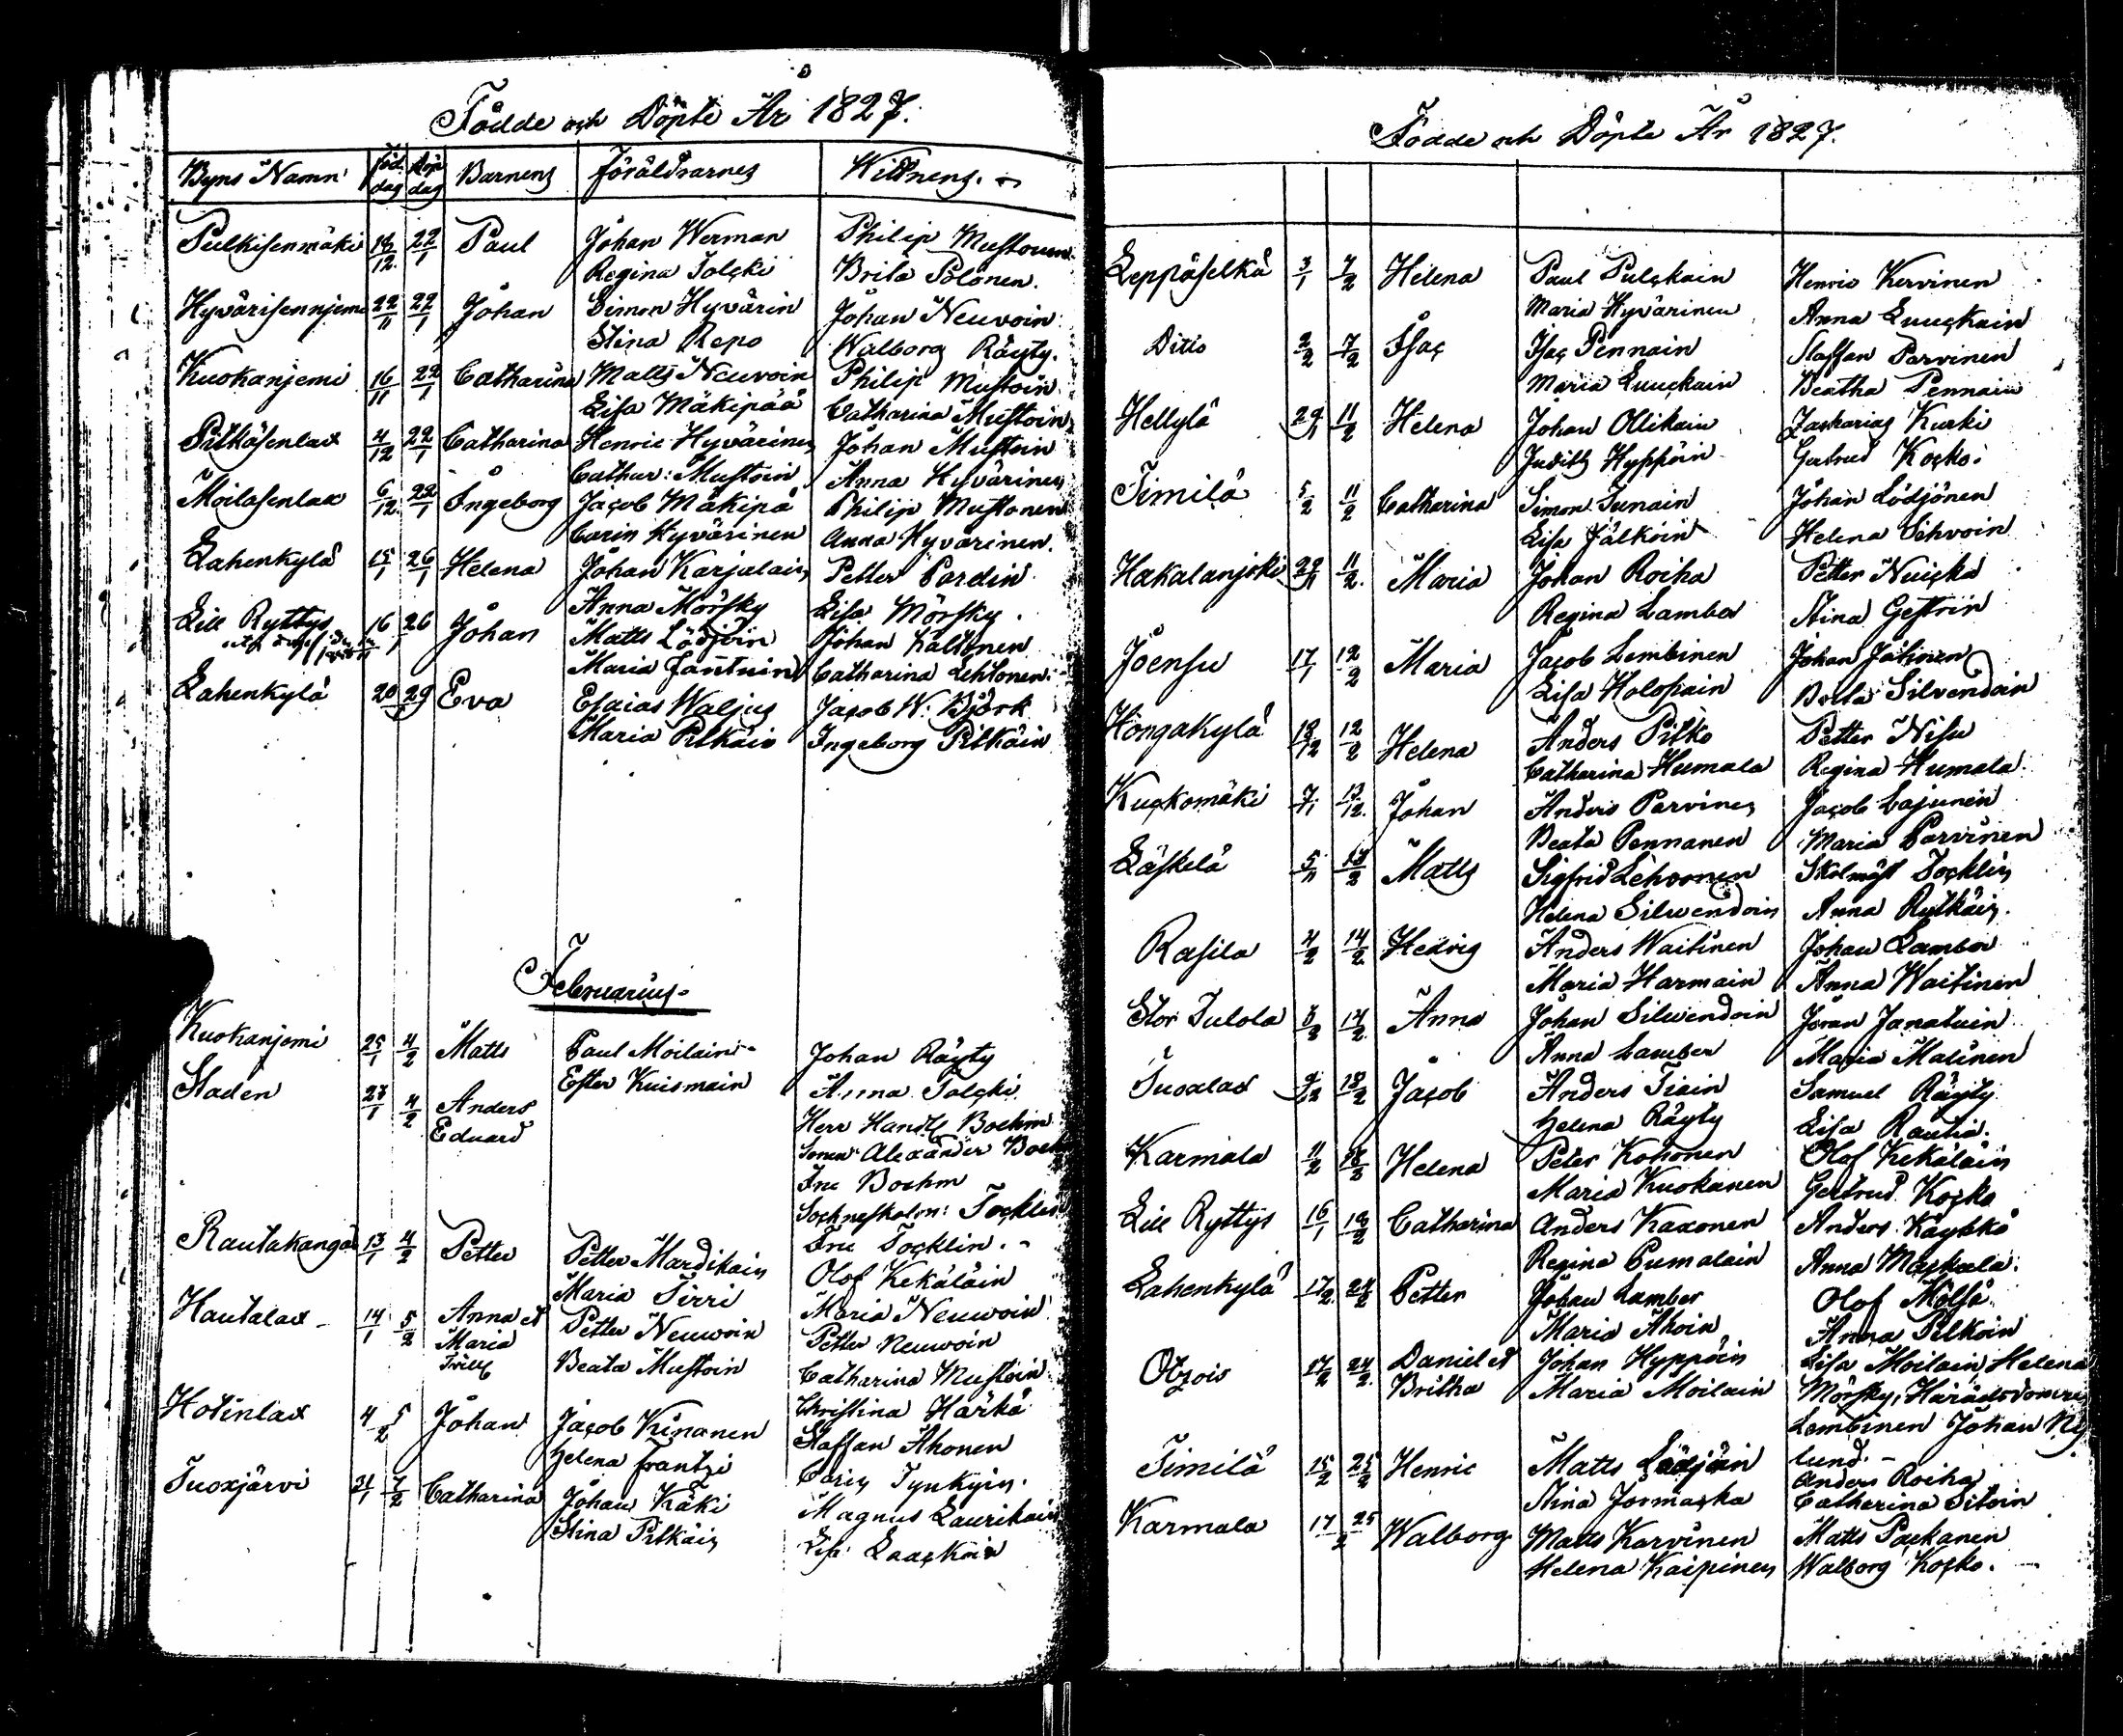 Födde och Döpte År 1827.
Byns Namn Föd. dag Döp dag Barnens Föräldrarnes Wittnens.
Pulkisenmäki 18/12 22/1 Paul Johan Werman Philip Mustonen
Regina Tolcki Brita Polonen.
Hyvärisennjemi 22/11 22/1 Johan Simon Hyvärin Johan Neuvoin
Stina Repo Walborg Räyty.
Kuokanjemi 16/11 22/1 Catharina Matts Neuvoin Philip Mustoin
Lisa Mäkipää Catharina Mustoin
Pitkäsenlax 4/12 22/1 Catharina Henric Hyvärinen Johan Mustoin
Cathar: Mustoin Anna Hyvärinen
Moilasenlax 6/12 22/1 Ingeborg Jacob Mäkipä Philip Mustonen
Carin Hyvärinen Anna Hyvärinen.
Lahenkylä 15/1 26/1 Helena Johan Karjalain Petter Pardin
Anna Mörsky Lisa Mörsky.
Lill Ryttys 16 26/1 Johan Matts Lödjöin Johan Kaltonen
Maria Jantuin Catharina Lehtonen.
Lahenkylä 20 29/1 Eva Esaias Waljus Jacob W. Björk
Maria Pitkäin Ingeborg Pitkäin
Februarius.
Kuokanjemi 25/1 4/2 Matts Paul Moilain Johan Räyty
Ester Kuismain Anna Tolcki
Staden 27/1 4/2 Anders Herr Handl Boehm
Eduard Alexander Boehm
Fru Boehm
Tocklin
Fru Tocklin.
Rautakangas 13/1 4/2 Petter Petter Mardikain Olof Kekäläin
Maria Tirri Maria Neuwoin
Hautalax 14/1 5/2 Anna et Petter Neuwoin Petter Neuwoin
Maria Beata Mustoin Catharina Mustoin
Trill Christina Härkä
Hotinlax 4 5/2 Johan Jacob Kinanen Staffan Ahonen
Helena Frantzi Carin Tynkyin.
Tuoxjärvi 31/1 7/2 Catharina Johan Käki Magnus Laurikain
Stina Pitkäin Lisa Laackoin
Födde och Döpte År 1827.
Leppäselkä 3/1 7/2 Helena Paul Pulckain Henric Kervinen
Maria Hyvärinen Anna Luuckain
Ditto 2/2 7/2 Isac Isac Pennain Staffan Parvinen
Maria Luuckain Beatha Pennain
Hellylä 29/1 11/2 Helena Johan Ollikain Zacharias Kurki
Judith Hyppöin Gertrud Kocko.
Timilä 5/2 11/2 Catharina Simon Sunain Johan Lödjönen
Lisa Jälköin Helena Sihvoin
Hakalanjoki 29/11 11/2 Maria Johan Roiha Petter Nuicka
Regina Lamber Stina Gestrin
Joensu 17/1 12/2 Maria Jacob Lembinen Johan Jatinen
Lisa Holopain Silvendoin
Hongakylä 18/12 12/2 Helena Anders Pitko Petter Nisu
Catharina Humala Regina Humala
Kuckomäki 7/1 13/2 Johan Anders Parvinen Jacob Lajunen
Beata Pennanen Maria Parvinen
Läskelä 5/11 13/2 Matts Sigfrid Lehvonen Skolmäst Tocklin
Helena Silwendoin Anna Rytkäin.
Rasila 4/2 14/2 Hedvig Anders Waitinen Johan Lamber
Maria Harmain Anna Waitinen
Stor Tulola 8/2 14/2 Anna Johan Silwendoin Jöran Janatuin
Anna Lamber Maria Matinen
Tuoxlax 9/2 18/2 Jacob Anders Tiain Samuel Räyty
Helena Räyty Lisa Rautia.
Karmala 11/2 18/2 Helena Peter Kohonen Olof Kekäläin
Maria Kuokanen Gertrud Kocko
Lill Ryttys 16/1 18/2 Catharina Anders Kaxonen Anders Käyhkö
Regina Pumalain Anna Mackala.
Lahenkylä 17/2 24/2 Petter Johan Lamber Olof Mölsä
Maria Ahoin Anna Pitkäin
Otzois 17/2 24/2 Daniel et Johan Hyppöin Lisa Moilain, Helena
Britha Maria Moilain Mörsky, Häradsdomren
Lembinen Johan Ny
lund.
Timilä 15/2 25/2 Henric Matts Lödjöin Anders Roiha
Stina Jormacka Catharina Sitoin
Karmala 17 25/2 Walborg Matts Karvinen Matts Packanen
Helena Kaipinen Walborg Kocko.